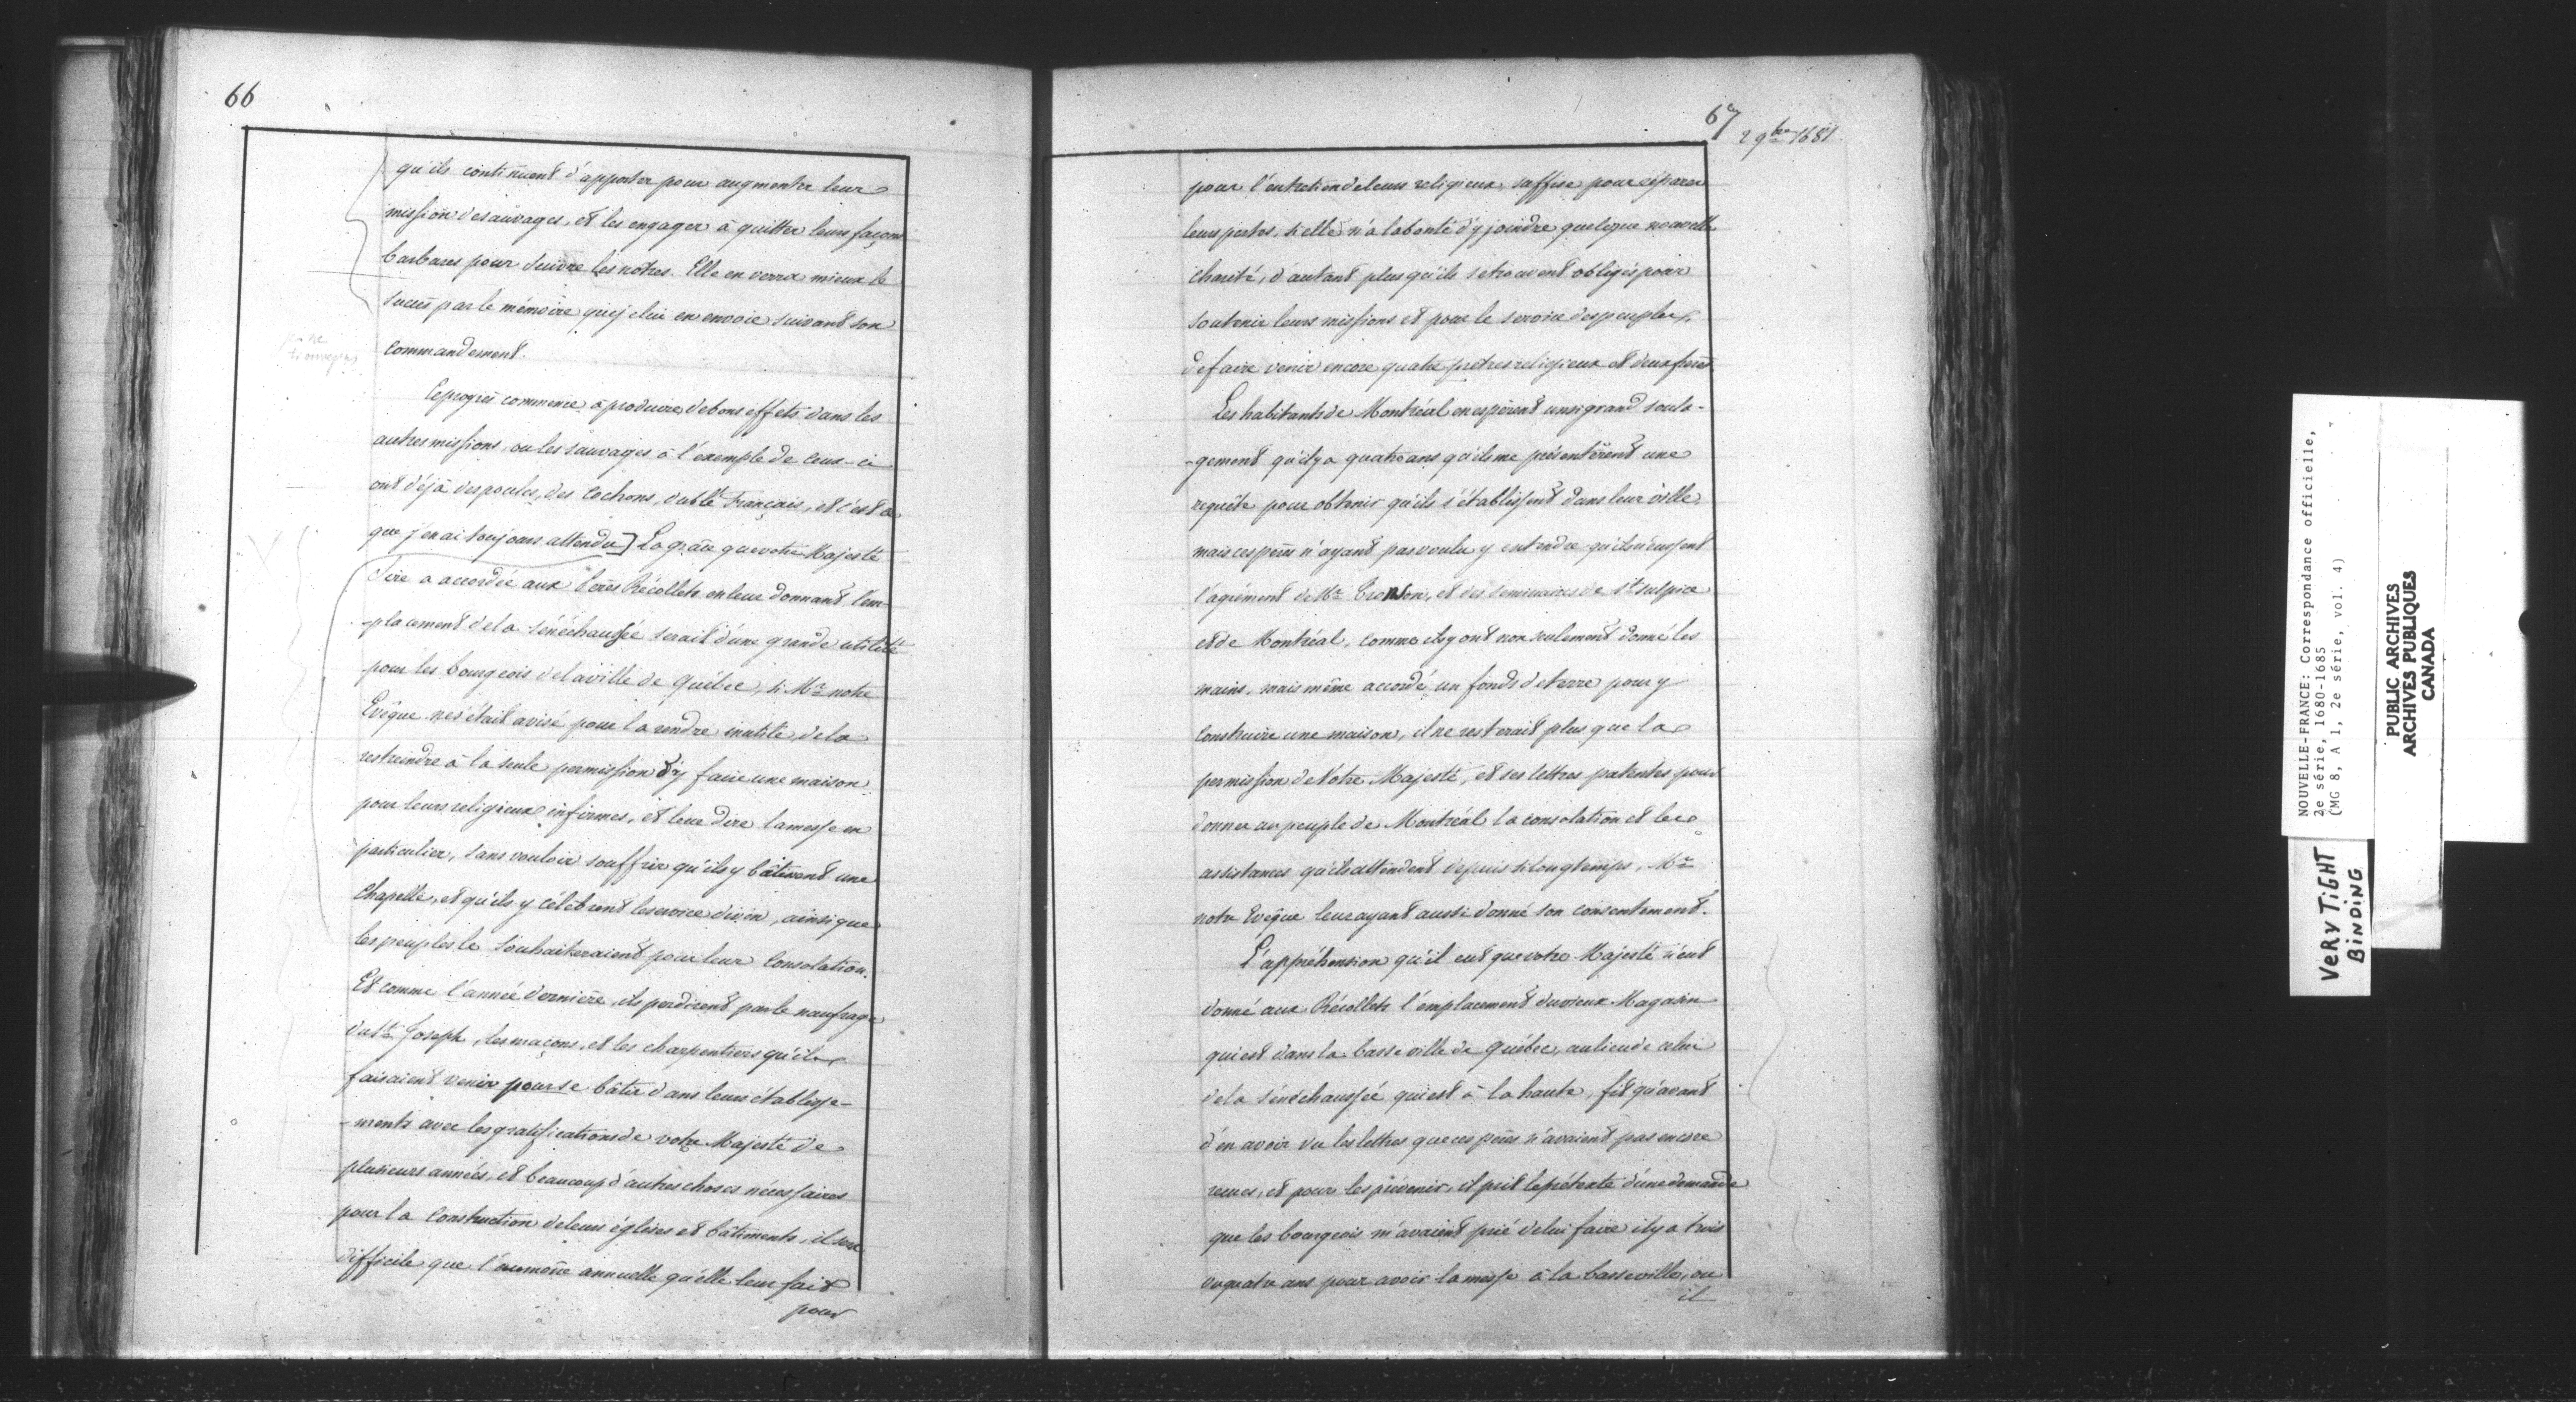 66
qu'ils continuent d'apporter pour augmenter leur
mission de sauvages, et les engager à quitter leurs façons
barbares pour suivre les nôtres. Elle en verra mieux le
succès par le mémoire que je lui en envoie suivant son
commandement.
Ce progrès commence à produire de bons effets dans les
autres missions, ou les sauvages à l'exemple de ceux-ci
ont déjà des poules, des cochons, du blé français, et c'est ce
que j'en ai toujours attendu] La grâce que votre Majesté
Sire a accordée aux Pères Récollets en leur donnant l'em-
-placement de la sénéchaussée serait d'une grande utilité
pour les bourgeois de la ville de Québec, si Mr notre
Evêque ne s'était avisé pour la rendre inutile, de la
restreindre à la seule permission d'y faire une maison
pour leurs religieux infirmes, et leur dire la messe en
particulier, sans vouloir souffrir qu'ils y bâtirent une
Chapelle, et qu'ils y célèbrent le service divin, ainsi que
les peuples le souhaiteraient pour leur Consolation.
Et comme l'année dernière, ils perdirent par le naufrage
du St Joseph, les maçons, et les charpentiers qu'ils
faisaient venir pour se bâtir dans leurs établisse-
-ments avec les gratifications de votre Majesté de
plusieurs années, et beaucoup d'autres choses nécessaires
pour la Construction de leurs églises et bâtiments, il sera
difficile que l'aumône annuelle qu'elle leur fait
pour
67
2 9bre 1681
pour l'entretien de leurs religieux, suffise pour réparer
leurs pertes, si elle n'a la bonté d'y joindre quelque nouvelle
charité, d'autant plus qu'ils se trouvent obligés pour
soutenir leurs missions et pour le service des peuples,
de faire venir encore quatre prêtres religieux et deux frères
Les habitants de Montréal en espèrent un si grand soula-
-gement qu'il y a quatre ans qu'ils me présentèrent une
requête pour obtenir qu'ils s'établissent dans leur ville,
mais ces pères n'ayant pas voulu y entendre qu'ils n'eussent
l'agrément de Mr Tronson, et des seminaires de St Sulpice
et de Montréal, comme ils y ont non seulement donné les
mains, mais même accordé un fonds de terre pour y
Construire une maison, il ne resterait plus que la
permission de Votre Majesté, et ses lettres patentes pour
donner au peuple de Montréal la consolation et les
assistances qu'ils attendent depuis si longtemps, Mr
notre Evêque leur ayant aussi donné son consentement.
L'appréhension qu'il eut que votre Majesté n'eut
donné aux Récollets l'emplacement du vieux Magasin
qui est dans la basse ville de Québec, au lieu de celui
de la sénéchaussée qui est à la haute, fit qu'avant
d'en avoir vu les lettres que ces pères n'avaient pas encore
reçues, et pour les prévenir, il prit le prétexte d'une demande
que les bourgeois m'avaient prié de lui faire il y a trois
ou quatre ans pour avoir la messe à la basse ville, ou
il
NOUVELLE-FRANCE: Correspondance officielle,
2e série, 1680-1685
(MG 8, A 1, 2e série, vol. 4)
PUBLIC ARCHIVES
ARCHIVES PUBLIQUES
CANADA
VERY TIGHT
BINDING